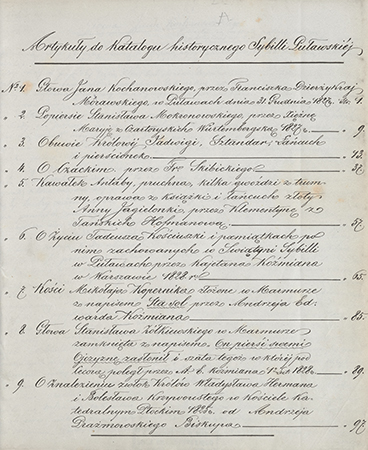 Artykuły do Katalogu historycznego Sybilli Puławskiéj
№ 1. Głowa Jana Kochanowskiego, przez Franciszka Dzierżykraj
Morawskiego, w Puławach dnia 31 Grudnia 1827. 1.
" 2. Popiersie Stanisława Mokronowskiego, przez Xiężnę
Maryję z Czartoryskich Würtembergską 1827 9.
3. Obuwie Królowéj Jadwigi, Sztandar, Łańcuch
i pierścionek 13.
4. O Czackim, przez Fr. Skibickiego 37.
" 5. Kawałek Antaby, próchna, kilka gwoździ z trum-
ny, oprawa z książki i łańcuch złoty
Anny Jagielonki, przez Klementynę z
Tańskich Hofmanową 57.
" 6. O Życiu Tadeusza Kościuszki i pamiątkach po
nim zachowanych w Świątyni Sybilli
w Puławach przez Kajetana Koźmiana
w Warszawie 1828 r. 65.
" 7. Kości Mikołaja Kopernika złożone w Marmurze
z napisem Sta sol, przez Andrzeja Ed-
warda Koźmiana 85.
" 8. Głowa Stanisława Żółkiewskiego w Marmurze
zamknięta z napisem On piersi swemi
Ojczyznę zasłonił i szata tegoż w któréj pod
Cecorą poległ przez A. E. Koźmiana 1828. 89.
" 9. O znalezieniu zwłok Królów Władysława Hermana
i Bolesława Krzywoustego w Kościele Ka-
tedralnym Płockim 1825. od Andrzeja
Prażmowskiego Biskupa 97.